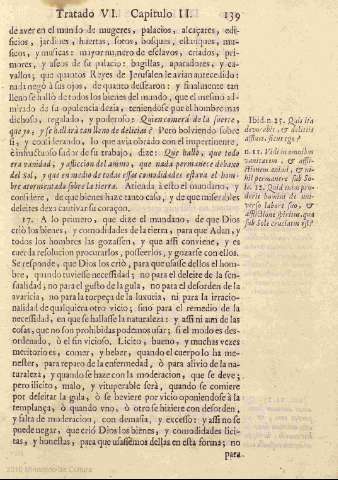 Tratado VI. Capitulo II. 139
de aver en el mundo de mugeres, palacios, alcaçares, edi-
ficios, jardines, huertas, sotos, bosques, estanques, mu-
sicos, y musicas: mayor numero de esclavos, criados, pri-
mores, y aseos de su palacio: baxillas, aparadores, y ca-
vallos; que quantos Reyes de Jerusalen le avian antecedido:
nada negò à sus ojos, de quanto dessearon: y finalmente tan
lleno se hallò de todos los bienes del mundo, que el mismo ad-
mirado de su opulencia dezia, teniendose por el hombre mas
dichoso, regalado, y poderoso: Quien comerà de la suerte,
que yo, y se hallarà tan lleno de delicias? Pero bolviendo sobre
si, y considerando, lo que avia obrado con el impertinente,
è infructuoso sudor de su trabajo, dize: Que hallò, que todo
era vanidad, y afliccion del animo, que nada permanece debaxo
del Sol, y que en medio de todas essas comodidades estava el hom-
bre atormentado sobre la tierra. Atienda à esto el mundano, y
considere, de que bienes haze tanto caso, y de que miserables
deleites dexa cautivar su coraçon.
17. A lo primero, que dize el mundano, de que Dios
criò los bienes, y comodidades de la tierra, para que Adan, y
todos los hombres las gozassen, y que assi conviene, y es
cuerda resolucion procurarlos, posseerlos, y gozarse con ellos.
Se responde, que Dios los criò, para que usasse dellos el hom-
bre, quando tuviesse necessidad; no para el deleite de la sen-
sualidad; no para el gusto de la gula, no para el desorden de la
avaricia, no para la torpeça de la luxuria, ni para la irracio-
nalidad de qualquiera otro vicio; sino para el remedio de la
necessidad, en que se hallasse la naturaleza: y assi ni aun de las
cosas, que no son prohibidas podemos usar; si el modo es des-
ordenado, ò el fin vicioso. Licito, bueno, y muchas vezes
meritorio es, comer, y beber, quando el cuerpo lo ha me-
nester, para reparo de la enfermedad, ò para alivio de la na-
turaleza, y quando se haze con la moderacion, que se deve;
pero ilicito, malo, y vituperable serà, quando se comiere
por deleitar la gula, ò se beviere por vicio oponiendose à la
templança; ò quando vno, ò otro se hiziere con desorden,
y falta de moderacion, con demasia, y excesso: y assi no se
puede negar, que criò Dios los bienes, y comodidades lici-
tas, y honestas, para que usassemos dellas en esta forma; no
para
Ibid. n. 25. Quis ita
devorabit, & deliciis
affluet, sicut ego?
n. 11. Vidi in omnibus
vanitatem, & affli-
ctionem animi, & ni-
hil permanere sub So-
le. 22. Quid enim pro-
derit homini de uni-
verso labore suo, &
afflictione spiritus, qua
sub Sole cruciatus est?
2010 Ministerio de Cultura